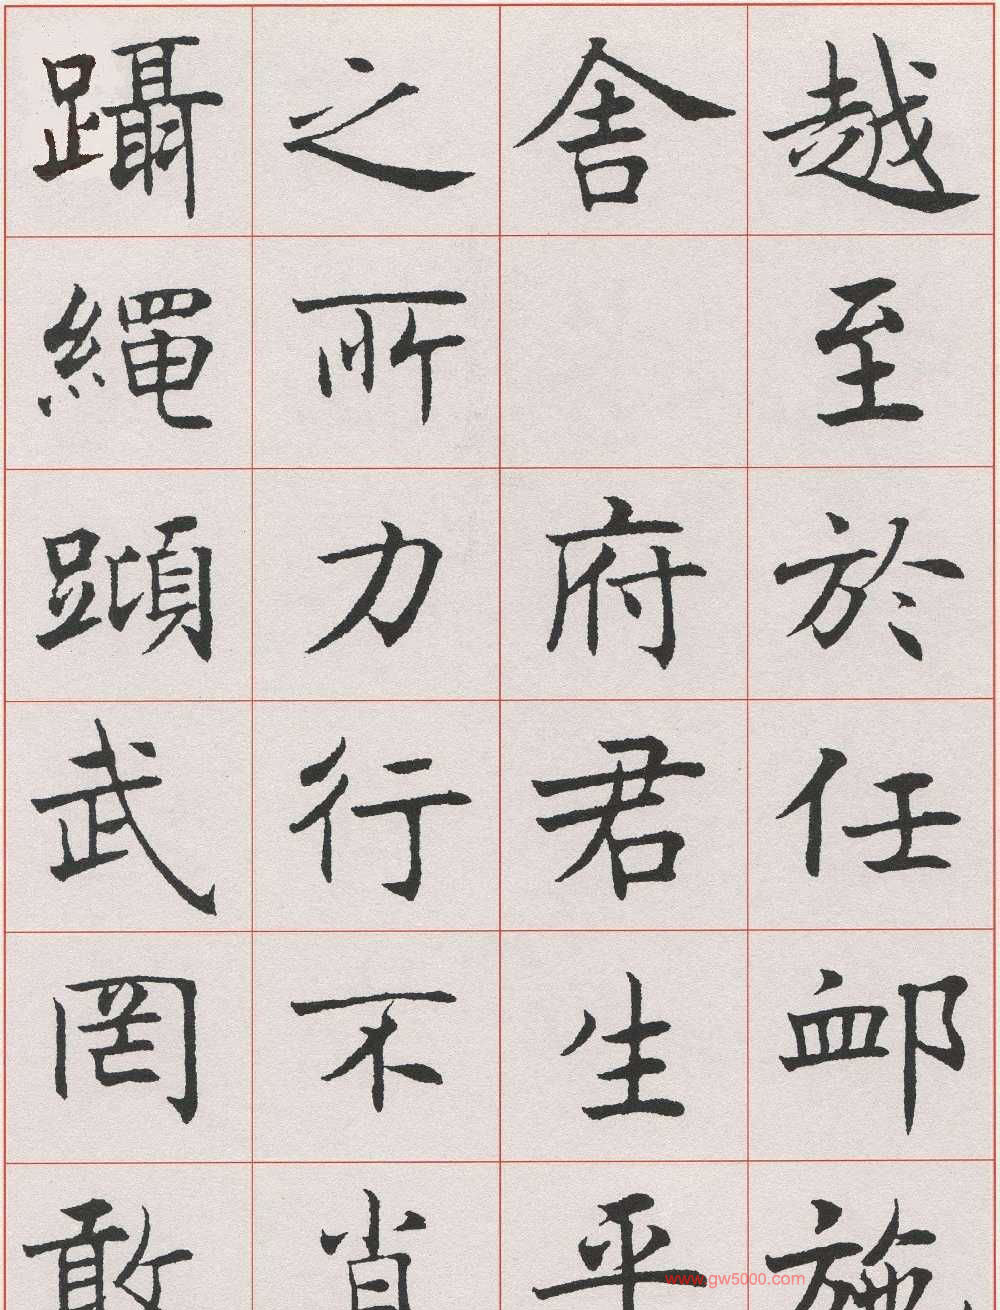 越至於任卹施
舍 府君生平
之所力行不肖
躡繩蹞武罔敢
www.gw5000.com